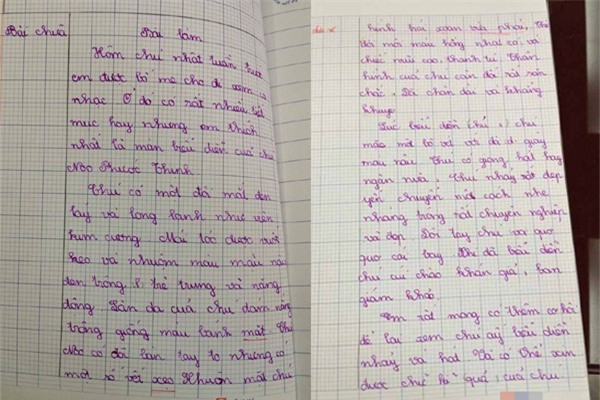 Bài chữa
Bài làm
Hôm chủ nhật tuần trước
em được bố mẹ cho đi xem ca
nhạc. Ở đó có rất nhiều tiết
mục hay nhưng em thích
nhất là màn biểu diễn của chú
Noo Phước Thịnh
Chú có một đôi mắt đen
láy và long lanh như viên
kim cương. Mái tóc được vuốt
keo và nhuộm màu nâu
đen trông trẻ trung và năng
động. Làn da của chú
trông giống màu bánh mật. Chú
Noo có đôi bàn tay to nhưng có
một số vết xẹo. Khuôn mặt chú
hình trái xoan vừa phải,
đôi môi màu hồng nhạt có, và
chiếc mũi cao, thanh tú. Thân
hình của chú cân đối rất săn
chắc, đôi chân dài và thẳng
Lúc biểu diễn chú
mặc một bộ vét và đôi giày
màu nâu. Chú có giọng hát hay
ngân nga. Chú nhảy rất đẹp
uyển chuyển một cách nhẹ
nhàng trông rất chuyên nghiệp
và đẹp. Đôi tay chú và quơ
quơ cái tay. Khi đã biểu diễn
chú cúi chào khán giả, ban
giám khảo.
Em rất mong có thêm cơ hội
để lại xem chú ấy biểu diễn
nhảy và hát. Và có thể xin
được chữ kí quý của chú